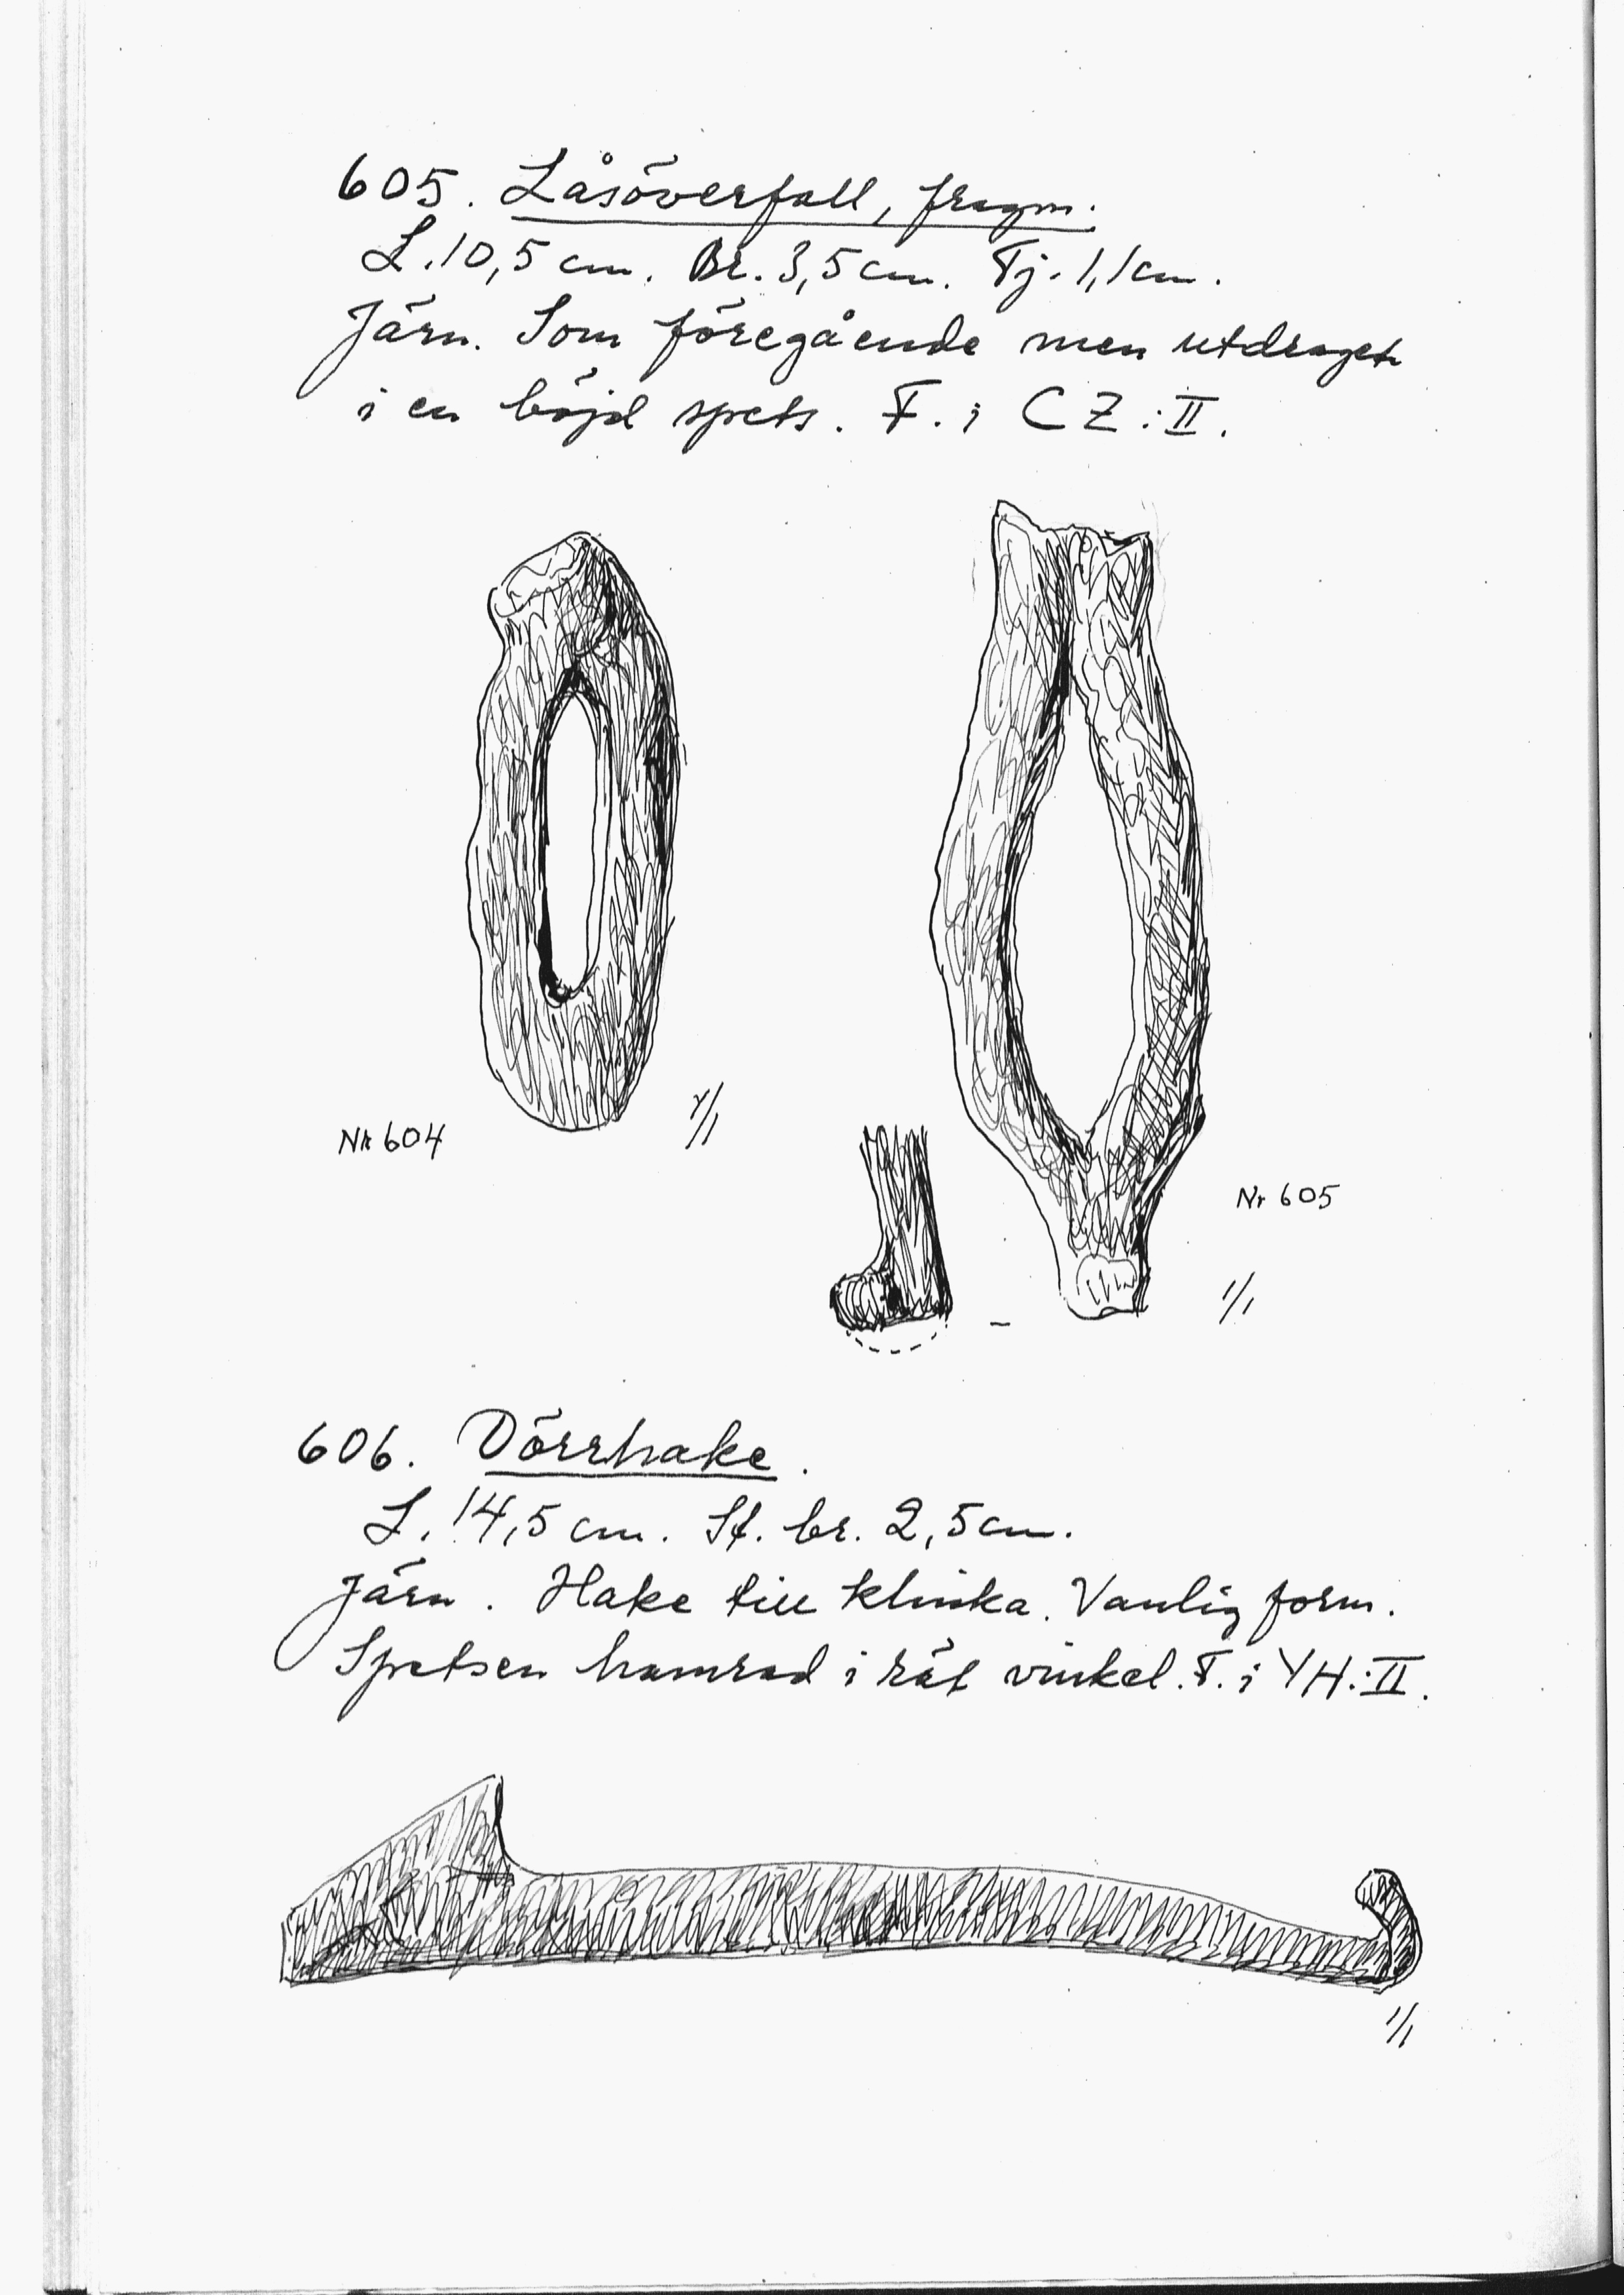 605. Låsöverfall, fragm.
L. 10,5 cm. Br. 3,5 cm. Tj. 1,1 cm.
Järn. Som föregående men utdraget
i en böjd spets. F. i CZ:II.
Nr 604
1/1
Nr 605
1/1
606. Dörrhake.
L. 14,5 cm. St. br. 2,5 cm.
Järn. Hake till klinka. Vanlig form.
Spetsen hamrad i rät vinkel. F. i YH:II.
1/1